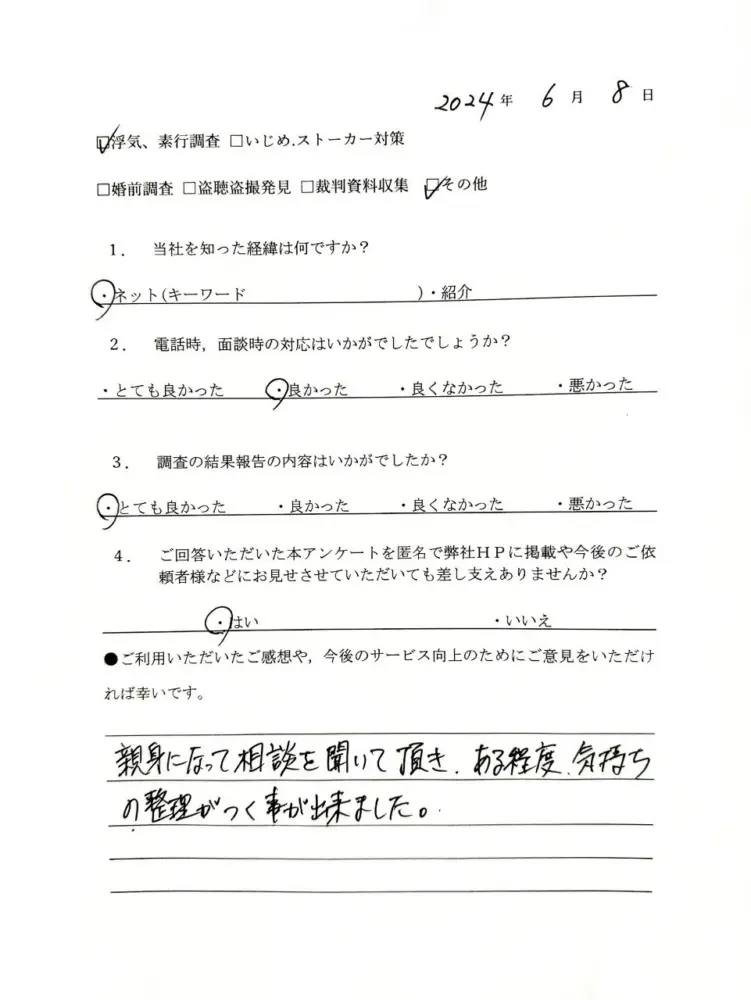 2024年 6月 8日
☑浮気、素行調査 □いじめ.ストーカー対策
□婚前調査 □盗聴盗撮発見 □裁判資料収集 ☑その他
1. 当社を知った経緯は何ですか？
・ネット(キーワード )・紹介
2. 電話時，面談時の対応はいかがでしたでしょうか？
・とても良かった ・良かった ・良くなかった ・悪かった
3. 調査の結果報告の内容はいかがでしたか？
・とても良かった ・良かった ・良くなかった ・悪かった
4. ご回答いただいた本アンケートを匿名で弊社ＨＰに掲載や今後のご依
頼者様などにお見せさせていただいても差し支えありませんか？
・はい ・いいえ
●ご利用いただいたご感想や，今後のサービス向上のためにご意見をいただけ
れば幸いです。
親身になって相談を聞いて頂き、ある程度、気持ち
の整理がつく事が出来ました。